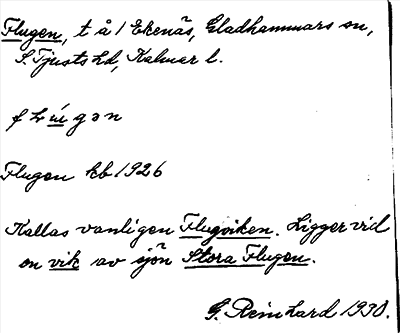 Flugen, t å 1 Ekenäs, Gladhammars sn,
S. Tjusts hd, Kalmar l.
flu̇́gən
Flugen kb 1926
Kallas vanligen Flugviken. Ligger vid
en vik av sjön Stora Flugen.
G. Reinhard 1930.